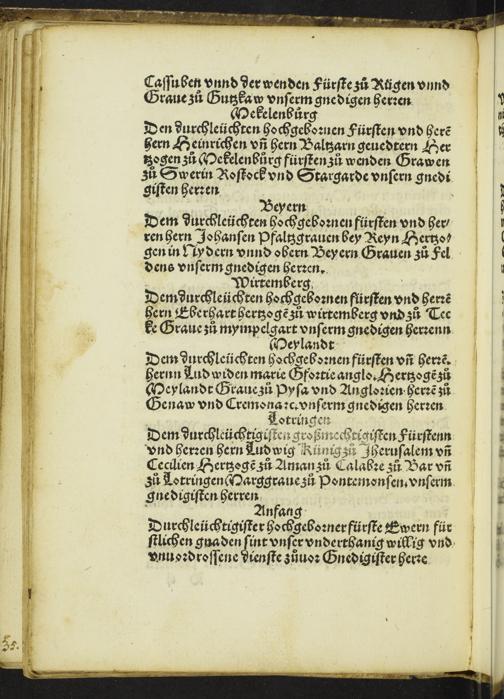 Cassuben vnnd der wenden Fürste zů Rügen vnnd
Graue zů Gutzkaw vnserm gnedigen herren
Mekelenbůrg
Den durchleüchten hochgebornen Fürsten vnd herē
hern Heinrichen vñ hern Baltzarn geuedtern Her
tzogen zů Mekelenbůrg fürsten zů wenden Grawen
zů Swerin Rostock vnd Stargarde vnsern gnedi
gisten herren
Beyern
Dem durchleüchten hochgebornen fürsten vnd her⸗
ren hern Johansen Pfaltzgrauen bey Reyn Hertzo⸗
gen in Nydern vnnd obern Beyern Grauen zů Fel
dens vnserm gnedigen herren.
Wirtemberg
Dem durchleüchten hochgebornen fürsten vnd herrē
hern Eberhart hertzogē zů wirtemberg vnd zů Tec
ke Graue zů mympelgart vnserm gnedigen herrenn
Meylandt
Dem durchleüchten hochgebornen fürsten vñ herrē.
hernn Ludwiden marie Sfortie anglo. Hertzogē zů
Meylandt Graue zů Pysa vnd Anglorien herrē zů
Genaw vnd Cremona ꝛc. vnserm gnedigen herren
Lotringen
Dem durchleüchtigisten großmechtigisten Fürstenn
vnd herren hern Ludwig Künig zů Jherusalem vñ
Cecilien Hertzogē zů Aman zů Calabre zů Bar vñ
zů Lotringen Marggraue zů Pontemonsen. vnserm
gnedigisten herren
Anfang
Durchleüchtigister hochgeborner fürste Ewern für
stlichen gnaden sint vnser vnderthanig willig vnd
vnuordrossene dienste zůuor Gnedigister herre
35.